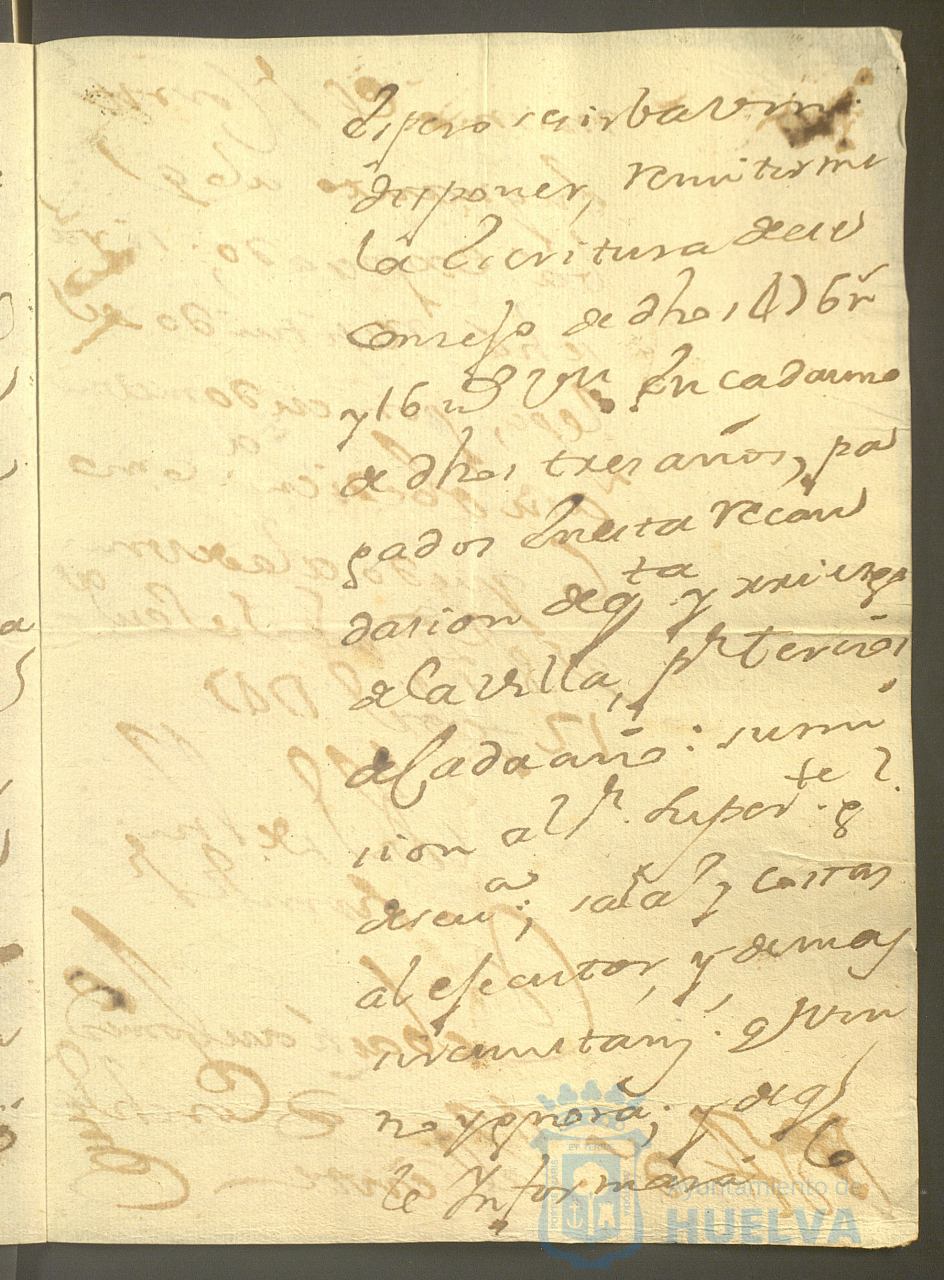 espero se sirba Vm
disponer, remitirme
la escritura de ese
Consejo de dhos
y 16 en cada uno
de dhos tres años, pa
gados en esta recau
dasion de qta y
de la villa, pr tercios
de Cada año: sumi
sion al Sr. Superte
de sea; sala y costas
al esecutor, y demas
sircunstans. q Vm
no ygnora; y de q
le Informara
Ayuntamiento de
HUELVA